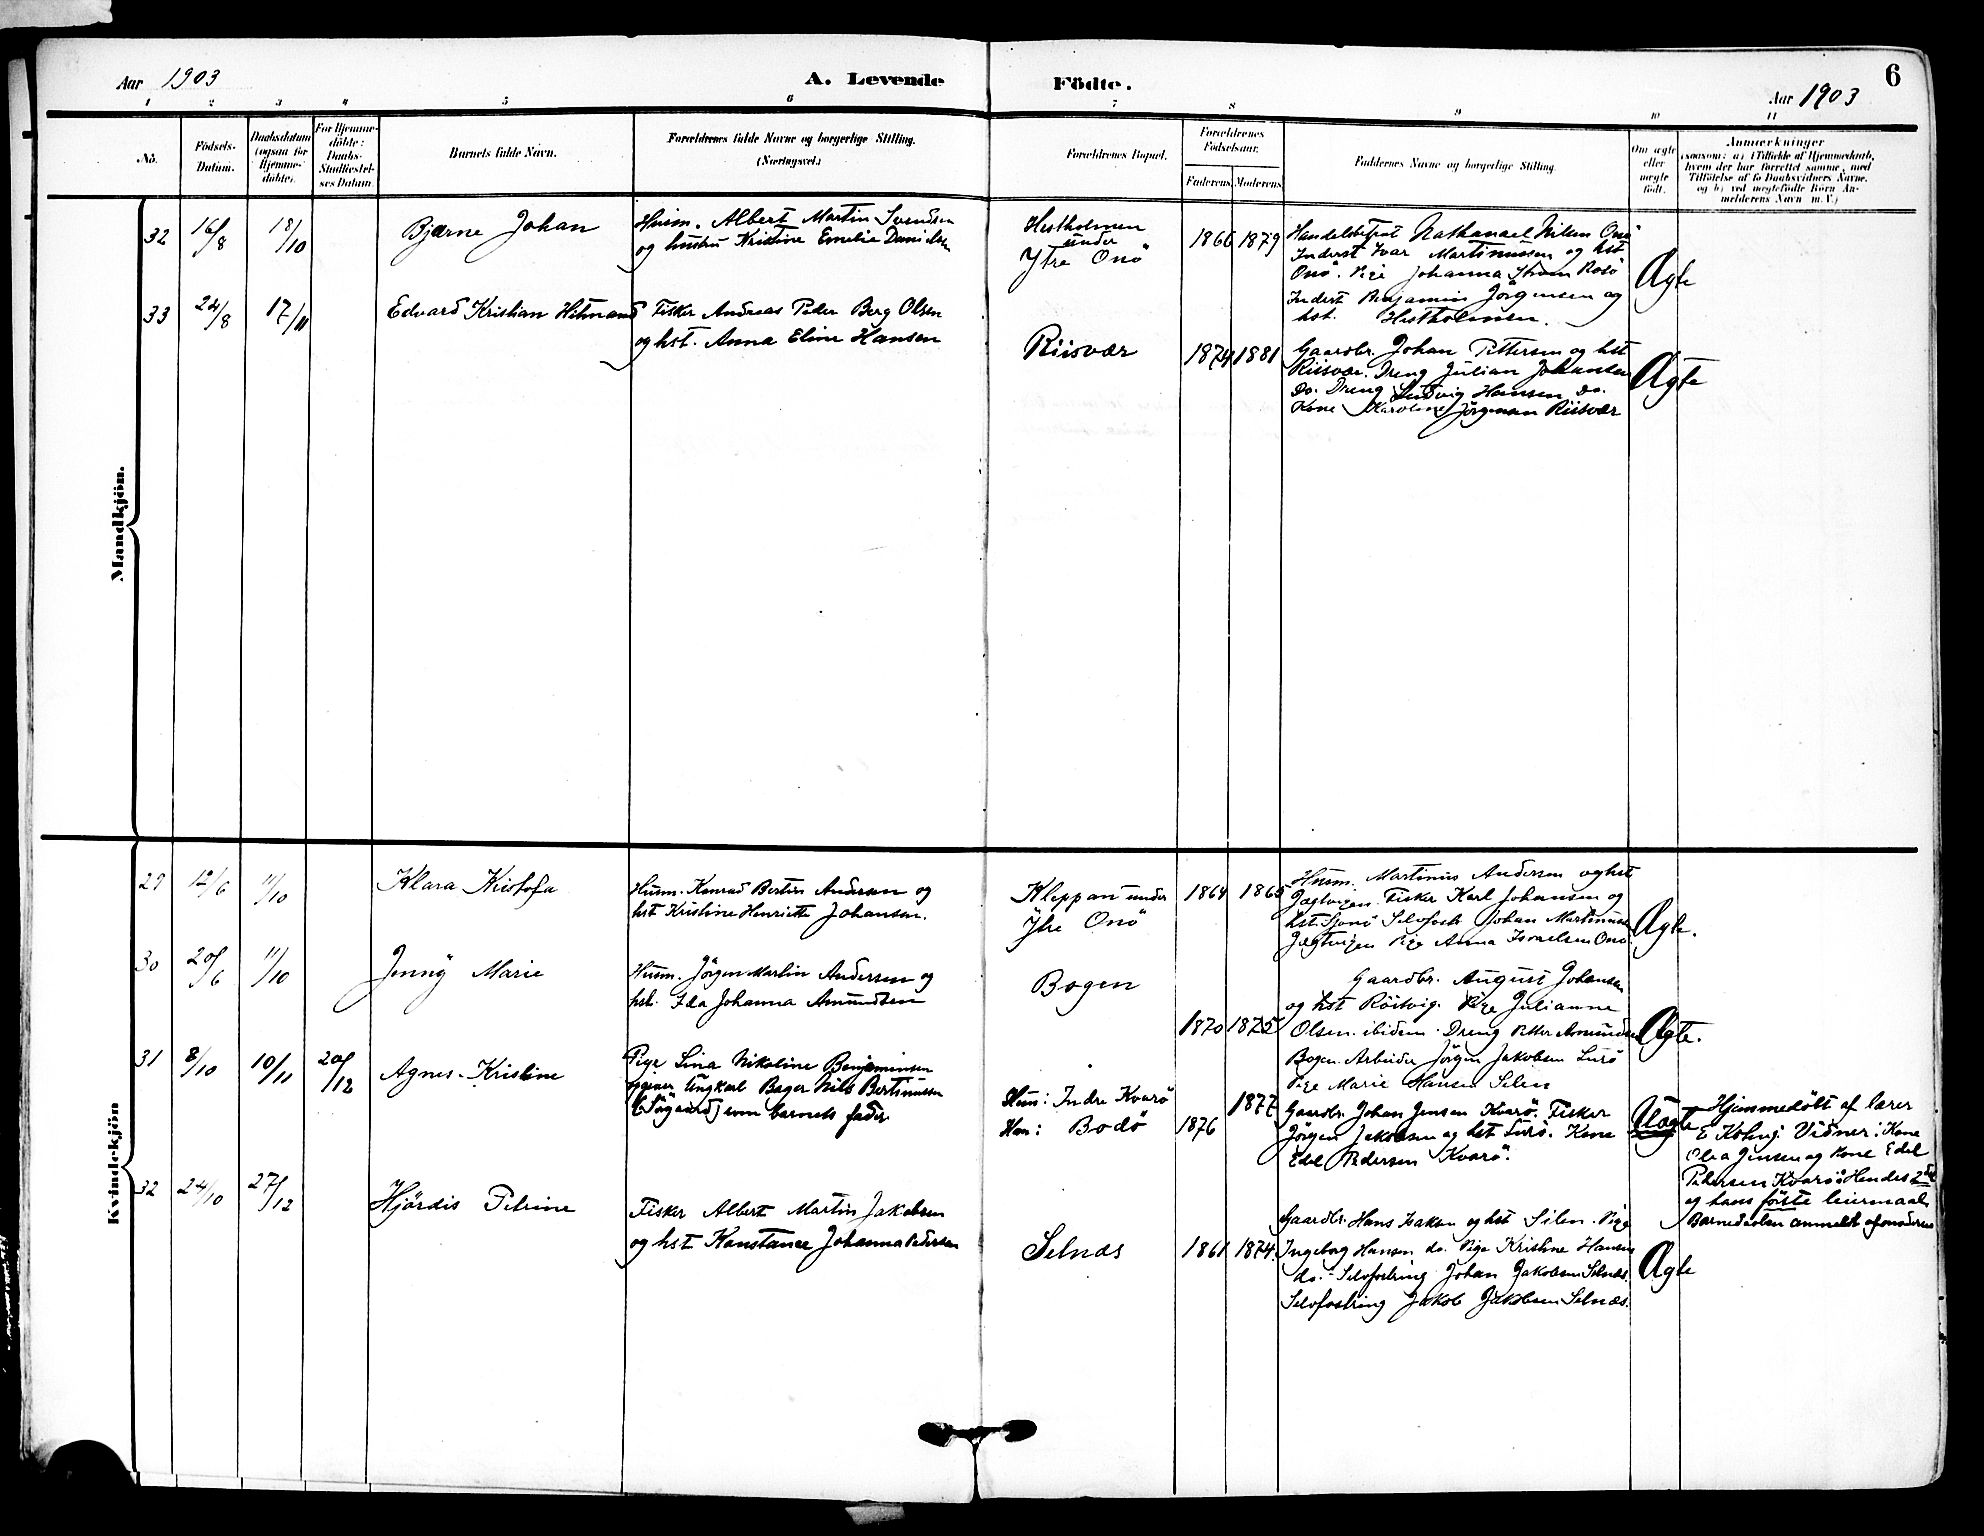 Aar 1903
A. Levende Födte.
6
Aar 1903
1 2 3 4 5 6 7 8 9 10 11
No.
Födsels-
Datum.
Daabsdatum
(ogsaa for
Hjemme-
döbte).
For Hjemme-
döbte:
Daabs-
Stadfæstel-
ses Datum.
Barnets fulde Navn.
Forældrenes fulde Navne og borgerlige Stilling.
(Næringsvei.)
Forældrenes Bopæl.
Forældrenes
Födselsaar.
Faderens. Moderens.
Faddernes Navne og borgerlige Stilling.
Om ægte
eller
uægte
födt.
Anmærkninger
(saasom: a) i Tilfælde af Hjemmedaab,
hvem der har forrettet samme, med
Tilföielse af to Daabsvidners Navne,
og b) ved uægtefödte Börn An-
melderens Navn m. V.)
Mandkjön.
32
16/8
18/10
Bjarne Johan
Husm. Albert Martin Svendsen
og hustru Kristine Emelie Danielsen
Hestholmen
under
Ytre Onö
1866
1879
Handelsbetrot Nathanael Nilsen Onö
Inderst Ivar Martinussen og hst
Onö. Pige Johanna Strøm Rosö
Inderst Benjamin Jörgensen og
hst. Hestholmen.
Ægte
33
24/8
17/11
Edvard Kristian Hitmand
Fisker Andreas Peder Berg Olsen
og hst. Anna Eline Hansen
Riisvær
1874
1881
Gaardbr. Johan Pettersen og hst
Riisvær. Dreng Julian Johansen
Do. Dreng Ludvig Hansen Do.
Kone Karoline Jörgensen Riisvær
Ægte
Kvindekjön
29
12/6
11/10
Klara Kristofa
Husm. Konrad Bertin Andersen og
hst Kristine Henriette Johansen.
Kleppan under
Ytre Onö
1864
1865
Husm. Martinus Andersen og hst
Jægtvigen. Fisker Karl Johansen og
hst Sjonö Selvfostr Johan Martinusen
Jægtvigen Pige Anna Israelsen Onö.
Ægte.
30
20/6
11/10
Jenny Marie
Husm. Jörgen Martin Andersen og
hst. Ida Johanna Amundsen
Bogen
1870
1875
Gaardbr. August Johansen
og hst Röitvig. Pige Julianne
Olsen ibidem. Dreng Petter Amundsen
Bogen. Arbeider Jörgen Jakobsen Lurö
Pige Marie Hansen Selen
Ægte.
31
8/10
10/11
20/12
Agnes Kristine
Pige Lina Nikoline Benjaminsen
opgiver Ungkarl Bager Nils Bertinussen
(Sögaard) som barnets fader
Hun: Indre Kvarö
Han: Bodö
1876
1877
Gaardbr. Johan Jensen Kvarö. Fisker
Jörgen Jakobsen og hst Lurö. Kone
Edel Pedersen Kvarö.
Uægte
Hjemmedöbt af lærer
E Kolvig Vidner: Kone
Olea Jensen og Kone Edel
Petersen Kvarö. Hendes 2det
og hans förste leiermaal
Barnedaaben anmeldt af moderen
32
24/10
27/12
Hjördis Petrine
Fisker Albert Martin Jakobsen
og hst Konstance Johanna Pedersen
Selnæs
1861
1874
Gaardbr. Hans Isaksen og hst Silen. Pige
Ingeborg Hansen do. Pige Kristine Hansen
do. Selvfostring Johan Jakobsen Selnæs.
Selvfostring Jakob Jakobsen Selnæs.
Ægte